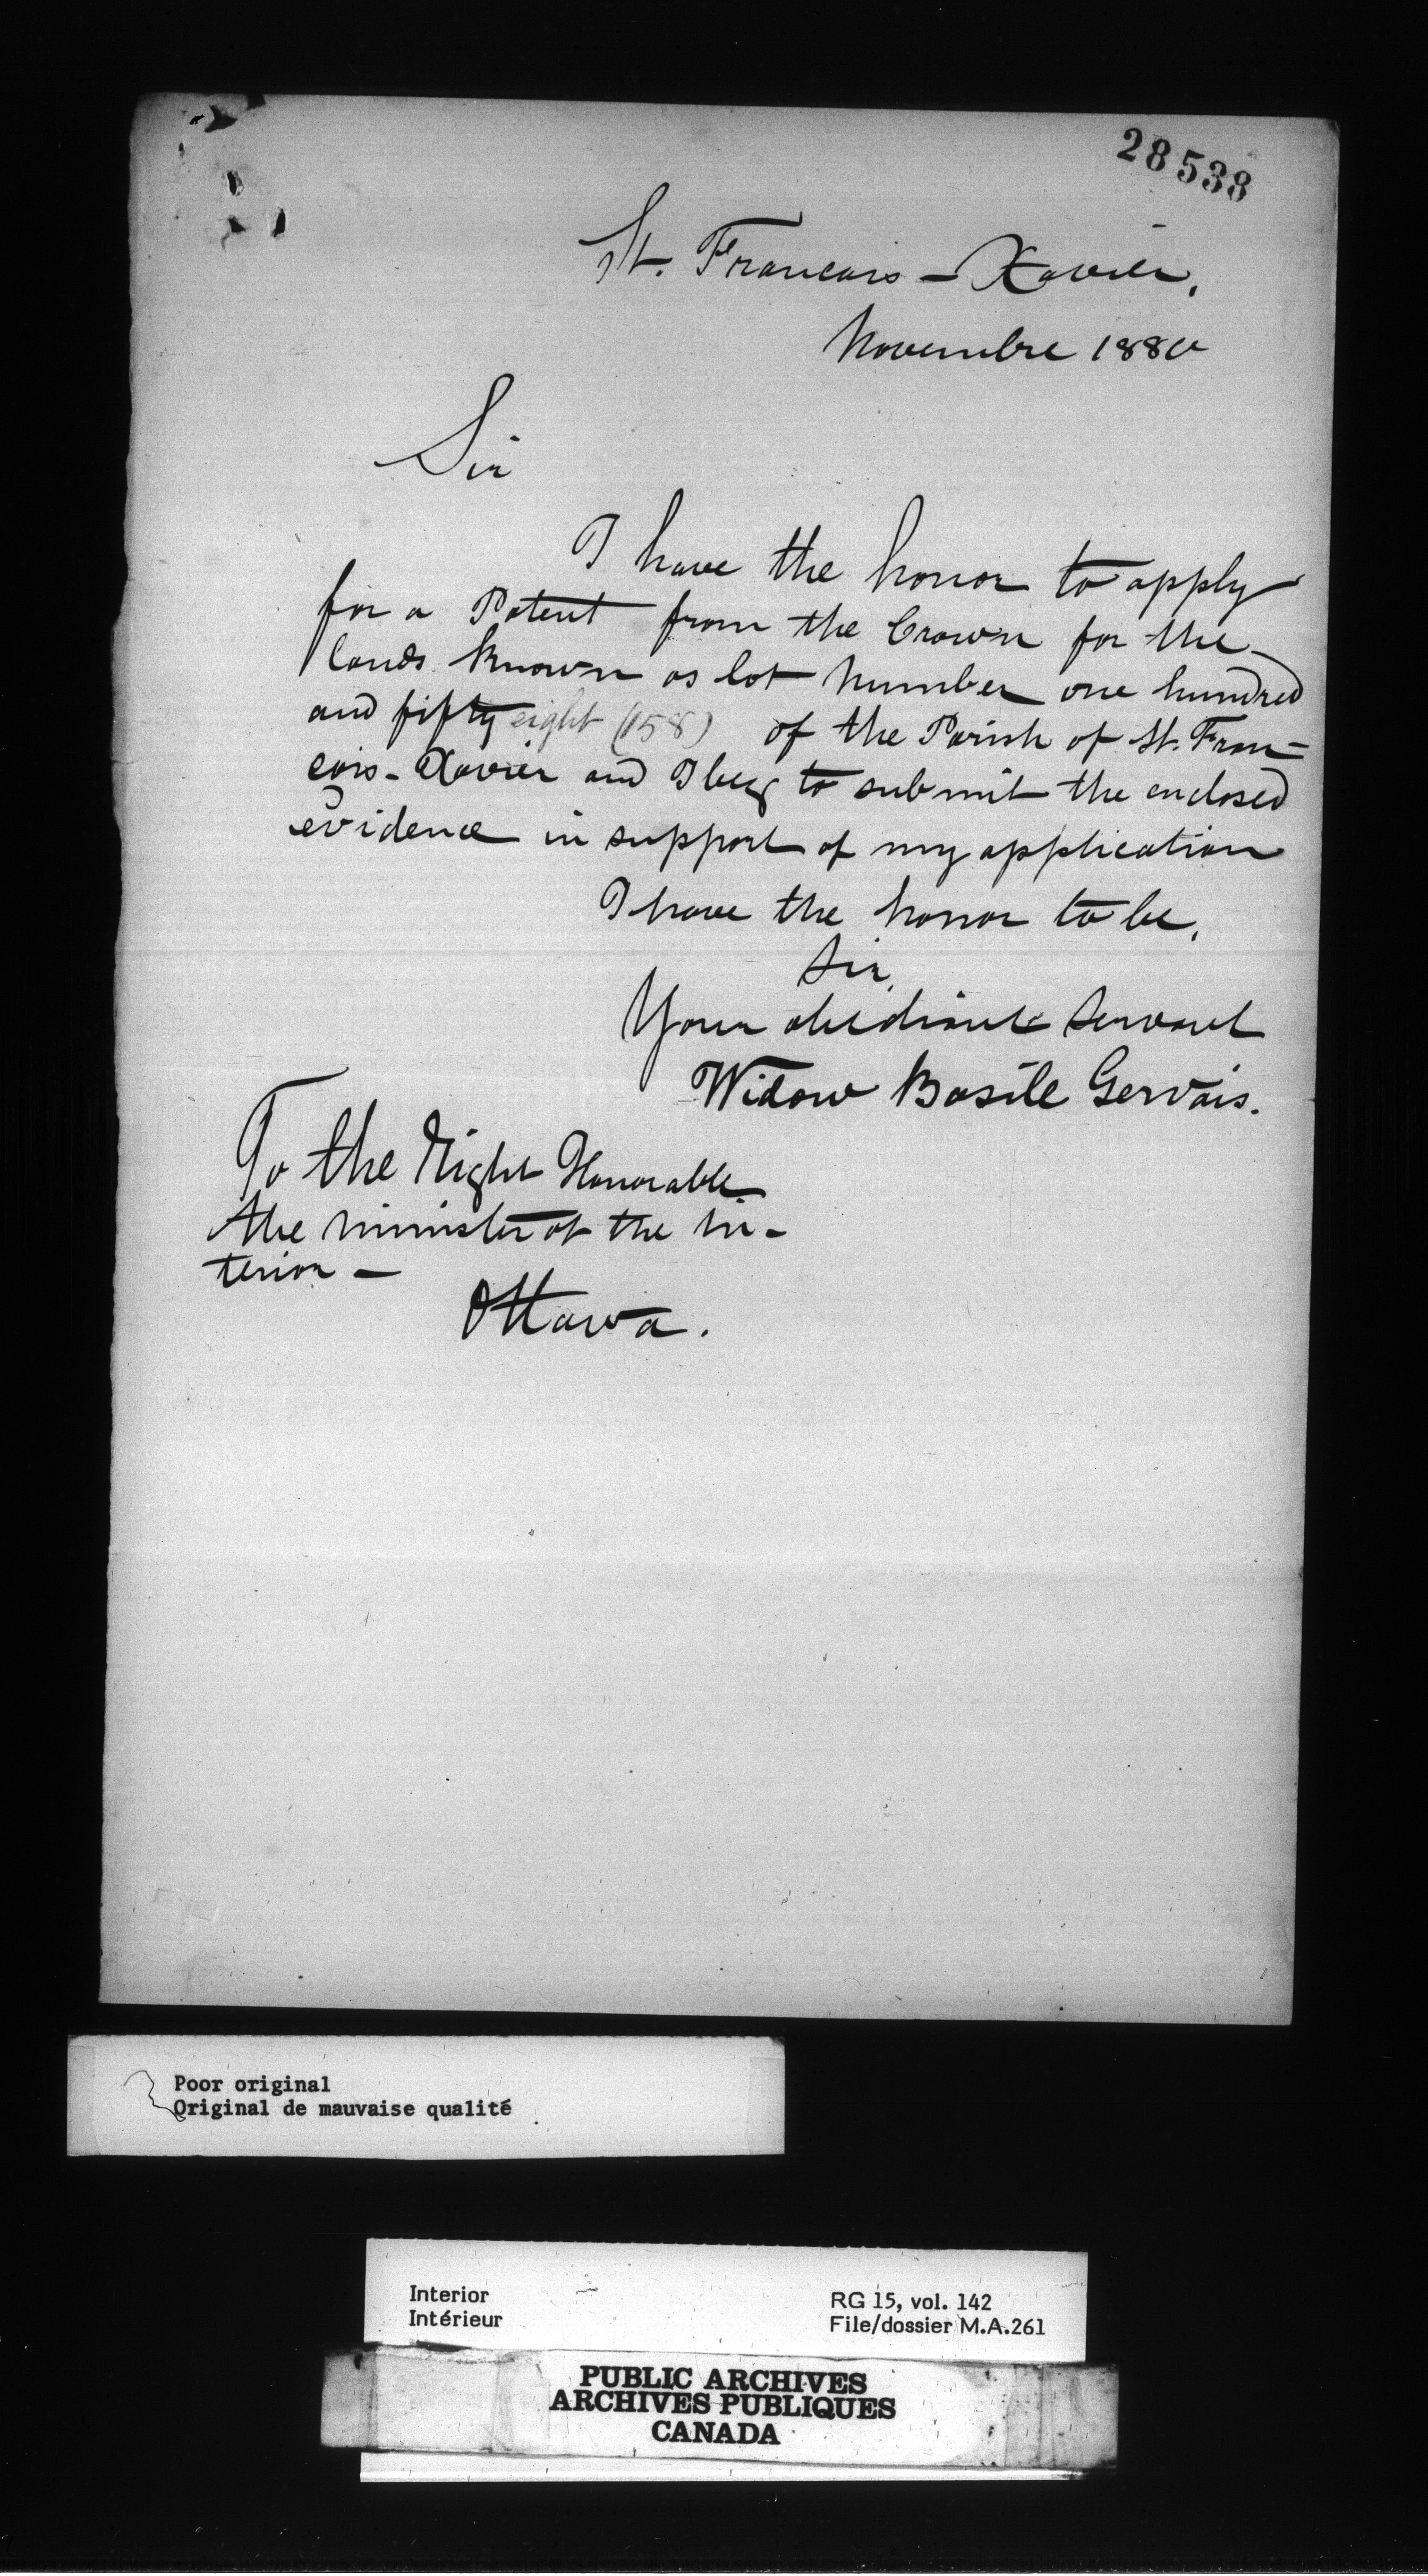 28538
St. Francois - Xavier,
Novembre 1880
Sir
I have the honor to apply
for a Patent from the Crown for the
lands known as lot number one hundred
and fifty eight (158) of the Parish of St. Fran-
cois - Xavier and I beg to submit the enclosed
evidence in support of my application
I have the honor to be,
Sir,
Your obediant servant
Widow Basile Gervais.
To the Right Honorable
the minister of the In-
terior -
Ottawa.
Poor original
Original de mauvaise qualité
Interior
Intérieur
RG 15, vol. 142
File/dossier M.A.261
PUBLIC ARCHIVES
ARCHIVES PUBLIQUES
CANADA